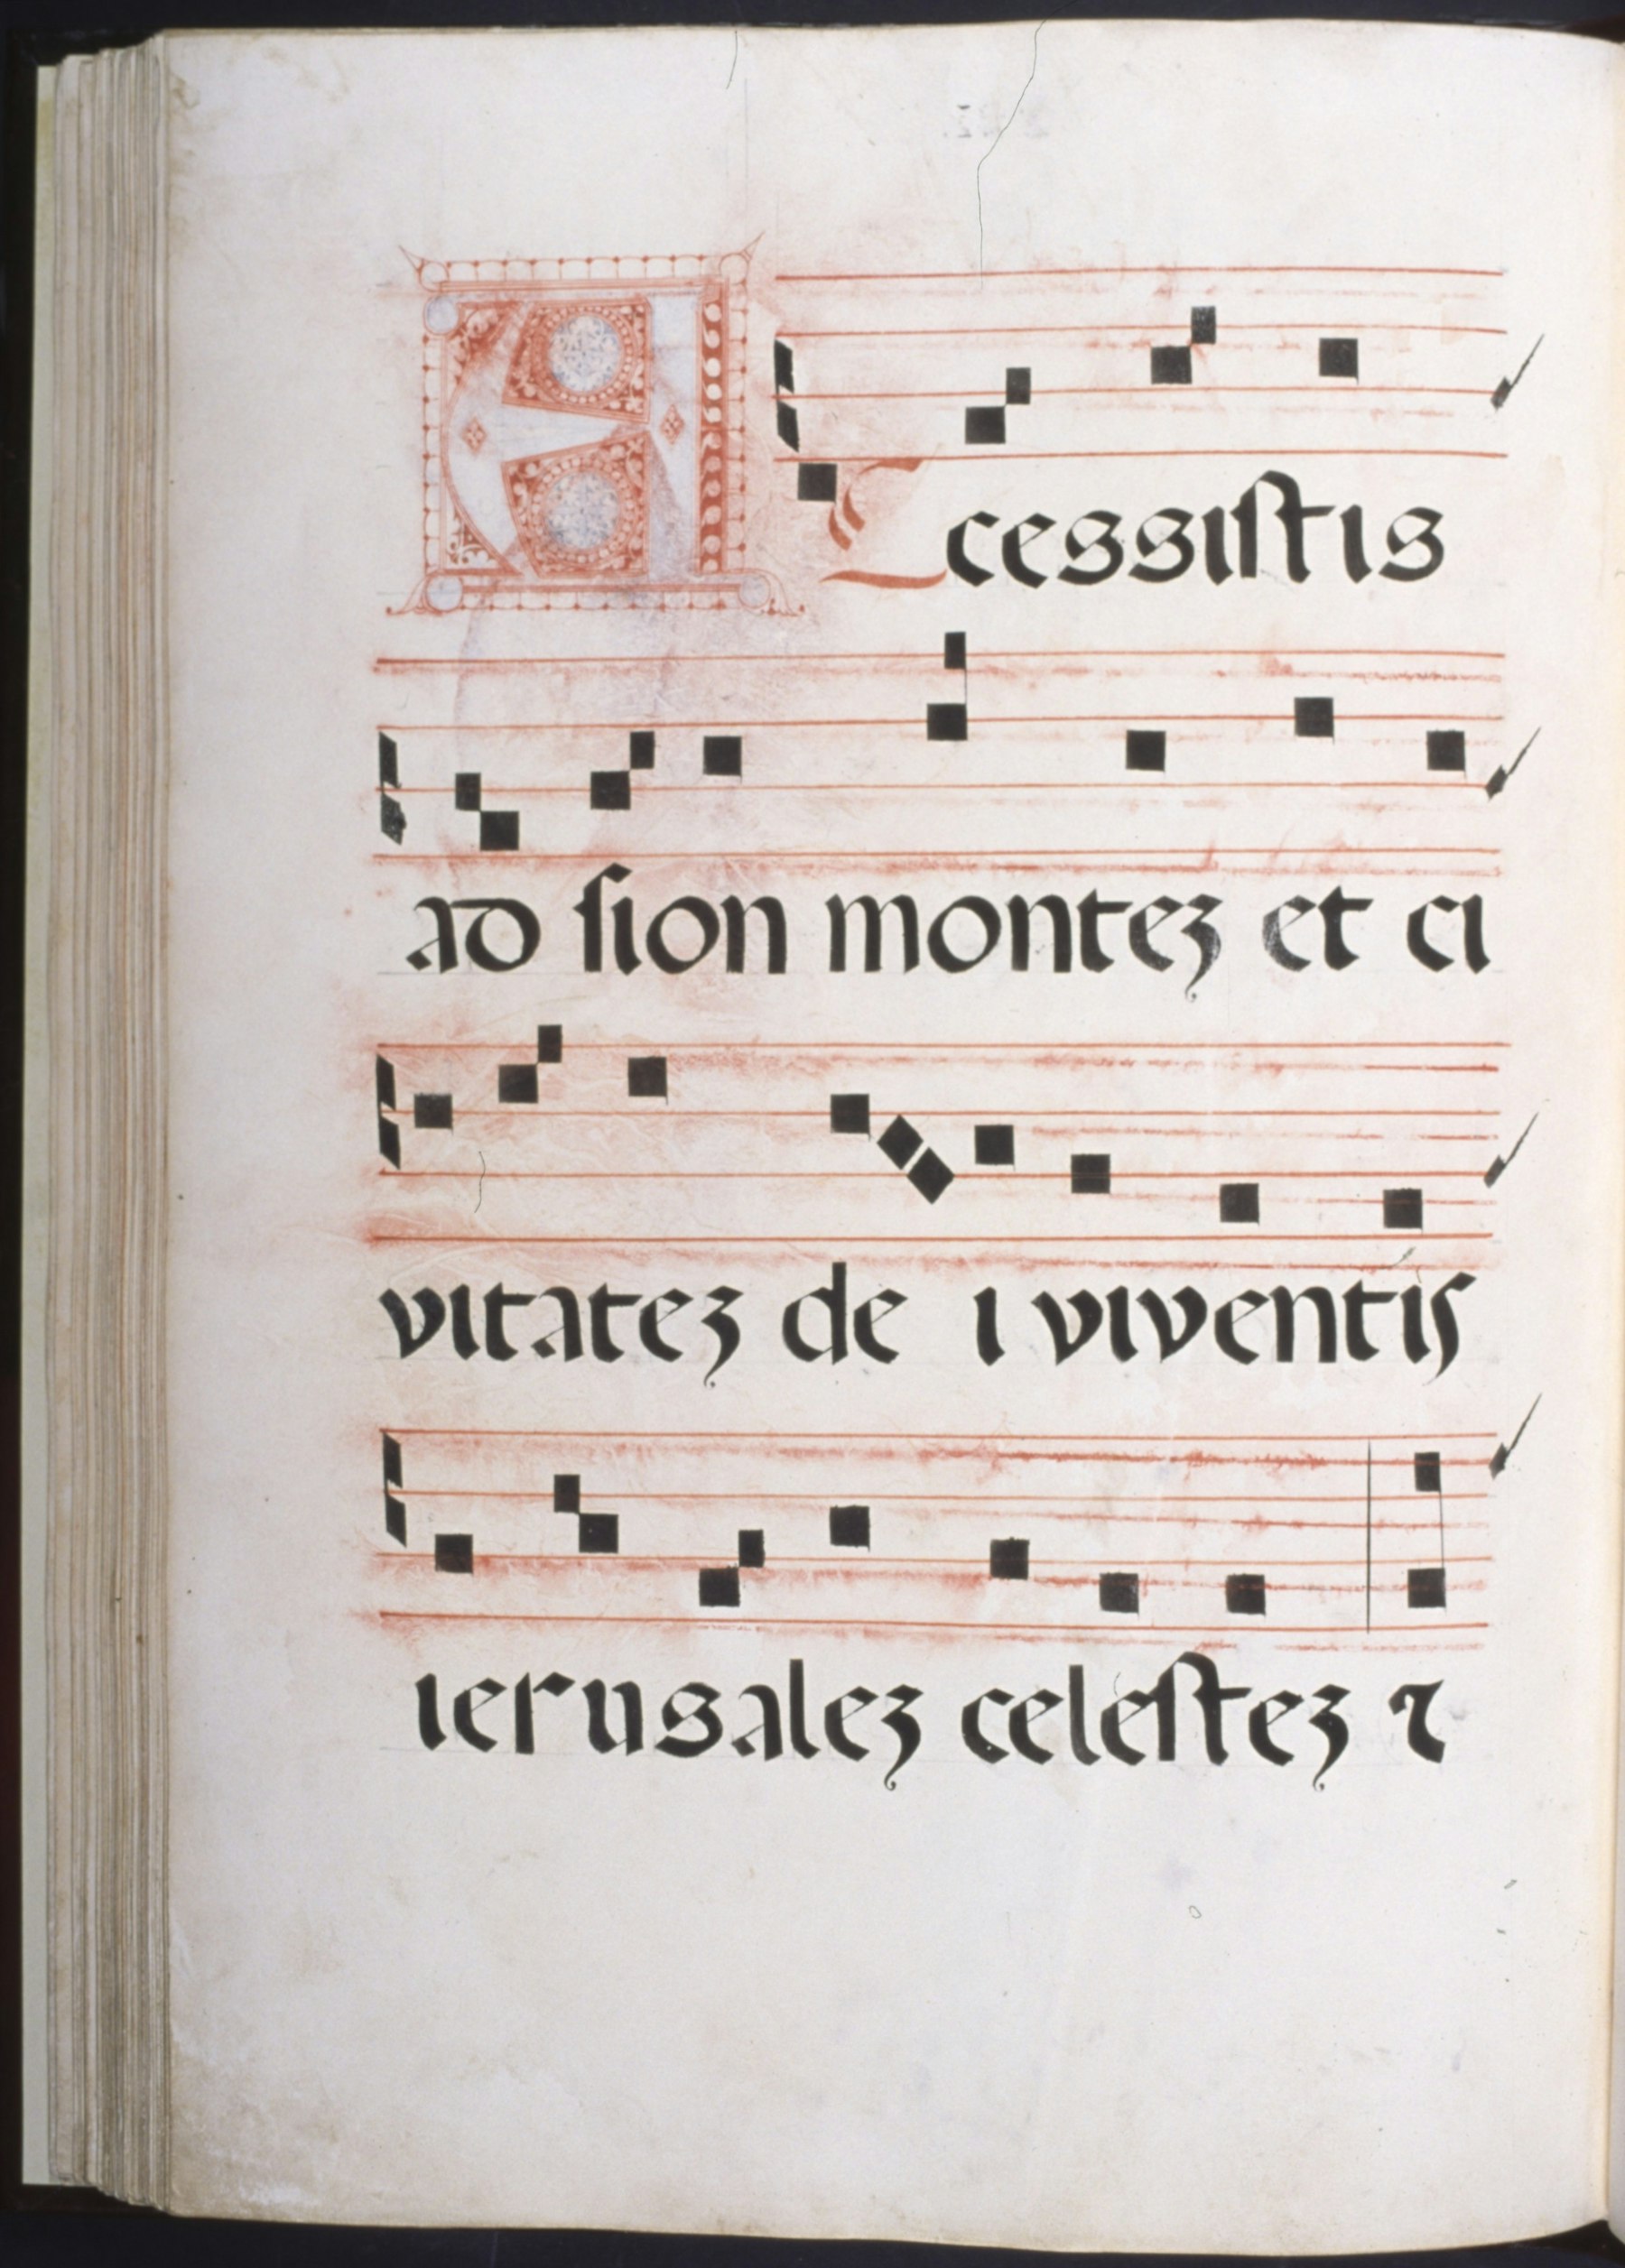 Accessistis
ad sion montez et ci
vitatez de i viventis
ierusalez celestez ⁊